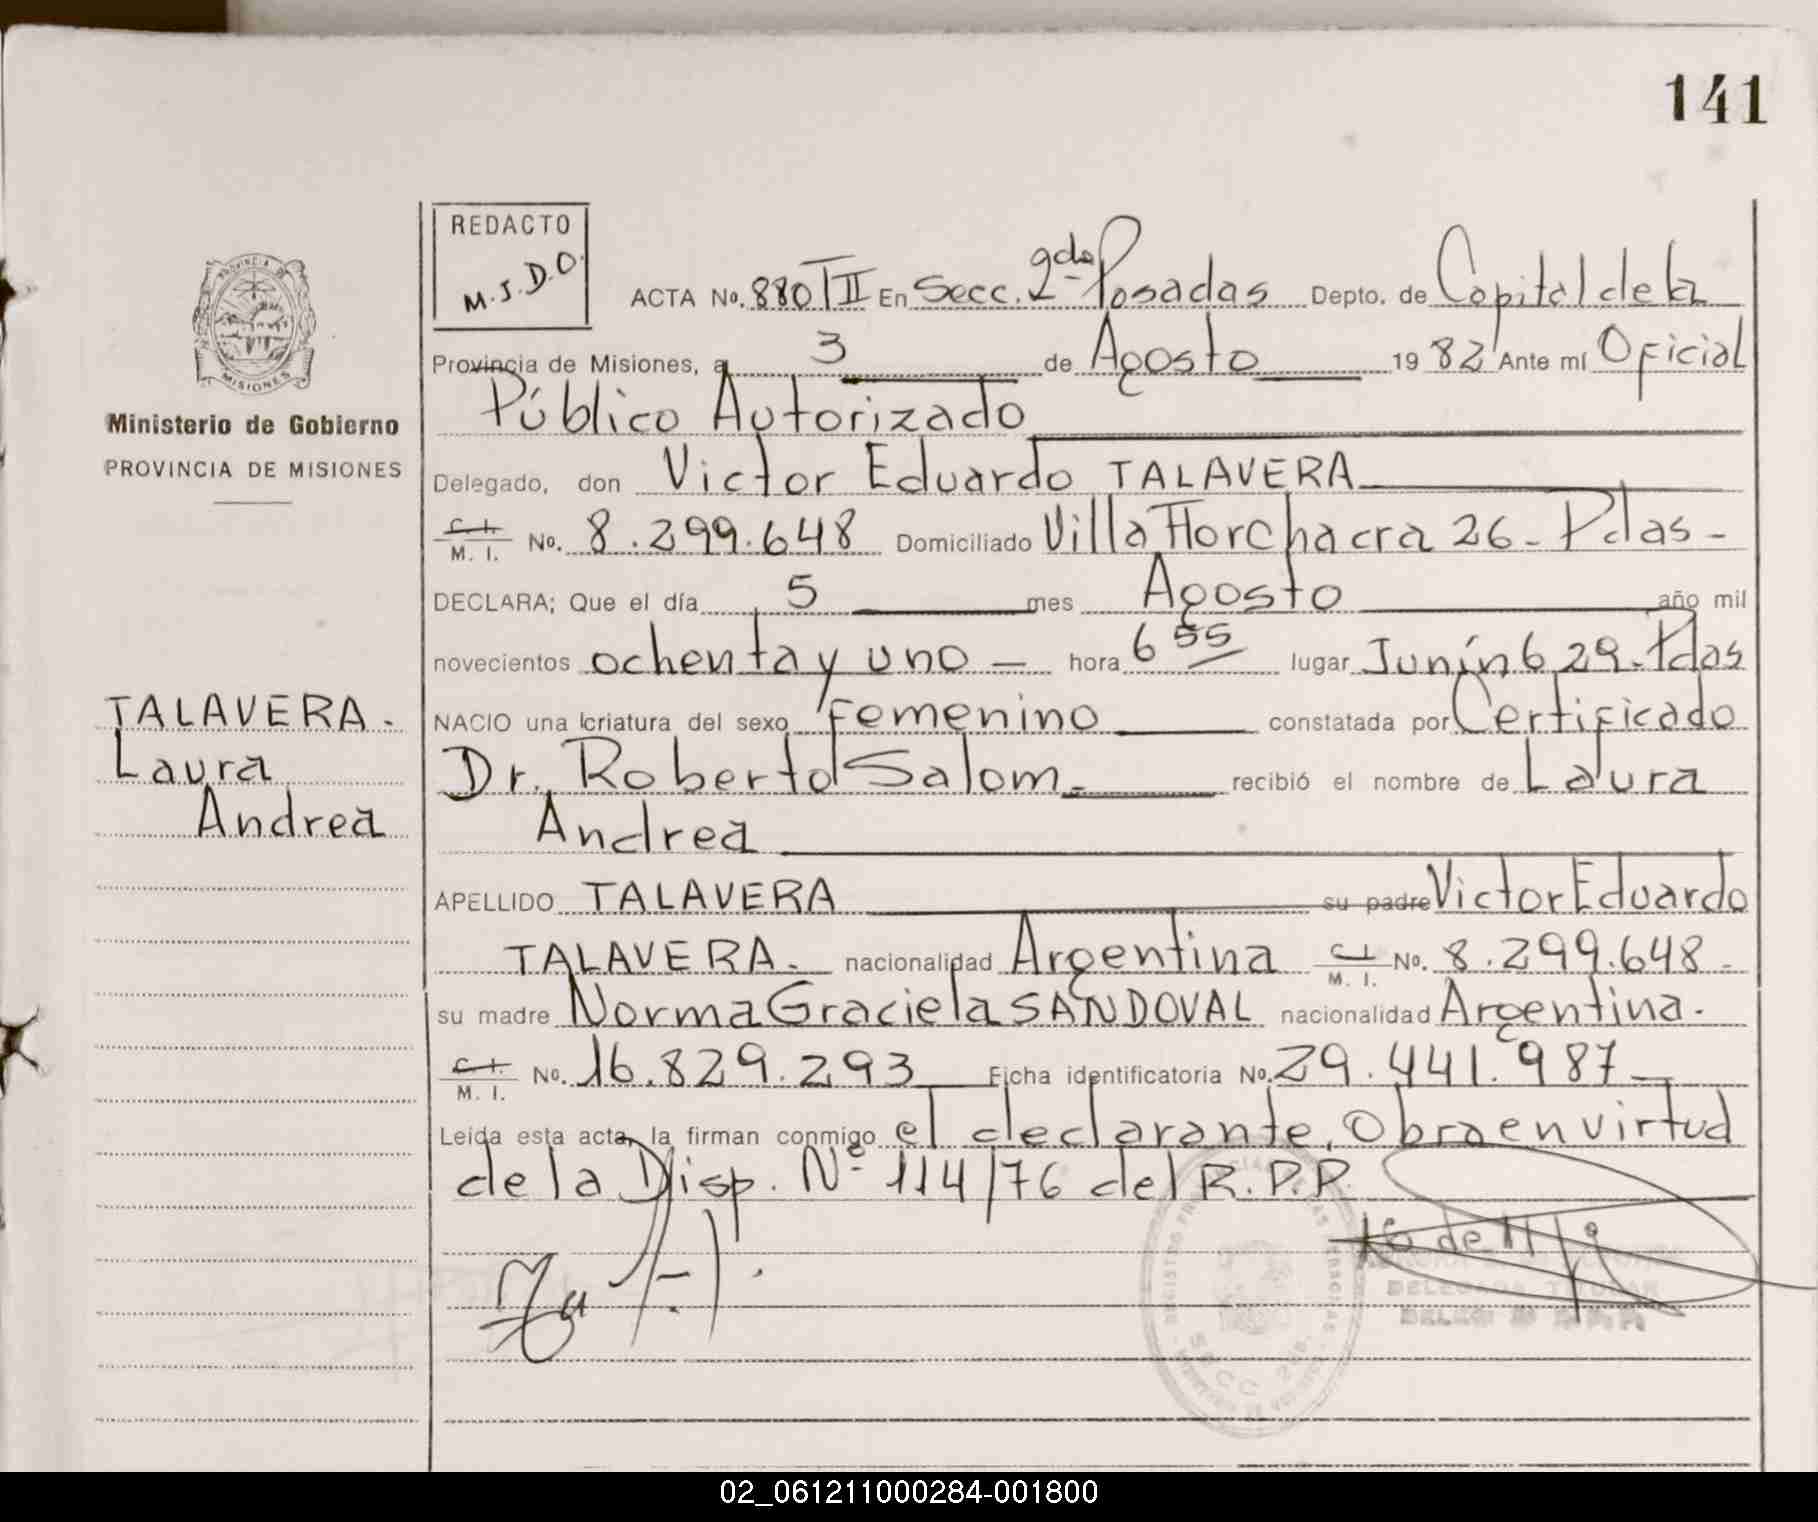 141
REDACTO
M.J.D.O.
ACTA No. 880 TII En Secc. 2da Posadas Depto. de Capital de la
Provincia de Misiones, a 3 de Agosto 1982 Ante mí Oficial
Público Autorizado
Delegado, don Victor Eduardo TALAVERA
C.I. M. I. No. 8.299.648 Domiciliado Villa Flor chacra 26 - Pdas -
DECLARA; Que el día 5 mes Agosto año mil
novecientos ochenta y uno - hora 6 55 lugar Junín 629. Pdas
NACIO una criatura del sexo femenino constatada por Certificado
Dr. Roberto Salom. recibió el nombre de Laura
Andrea
APELLIDO TALAVERA su padre Victor Eduardo
TALAVERA. nacionalidad Argentina C.I. M. I. No. 8.299.648 -
su madre Norma Graciela SANDOVAL nacionalidad Argentina.
C.I. M. I. No. 16.829.293 Ficha identificatoria No. 29.441.987
Leída esta acta, la firman conmigo el declarante, Obra en virtud
de la Disp. Nº 114/76 del R.P.P.
PROVINCIA DE
MISIONES
Ministerio de Gobierno
PROVINCIA DE MISIONES
TALAVERA.
Laura
Andrea
DELEGADA TITULAR
SECC. 2da.
02_061211000284-001800